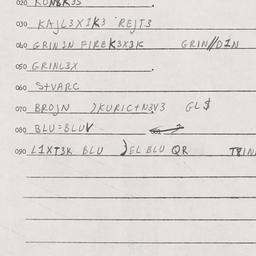 020 KON8K3S
030 KAJL3X1K3 'REJT3
040 GRIN1N FIREK3X3K GRIN//D1N
050 GRINL3X
060 S+VARC
070 BROJN )KURIC+N3V3 GL$
080 BLU=BLUV
090 L1XT3K BLU )EL BLU QR